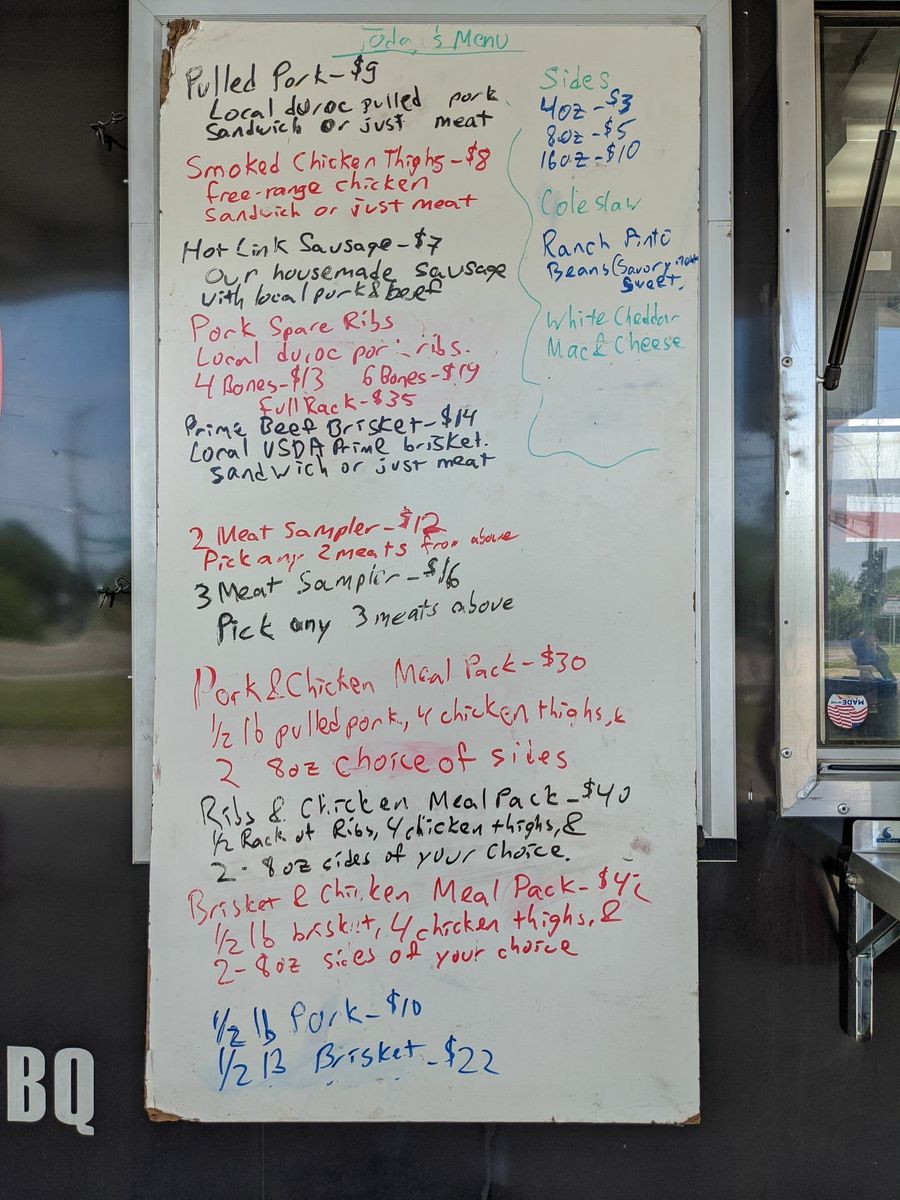 Today's Menu
Pulled Pork-$9
Local duroc pulled pork
Sandwich or just meat
Smoked Chicken Thighs-$8
free-range chicken
sandwich or just meat
Hot Link Sausage-$7
Our housemade sausage
with local pork & beef
Pork Spare Ribs
Local duroc pork ribs.
4 Bones-$13 6 Bones-$19
Full Rack-$35
Prime Beef Brisket-$14
Local USDA Prime brisket.
sandwich or just meat
Sides
4oz-$3
8oz-$5
16oz-$10
Coleslaw
Ranch Pinto
Beans(Savory not
sweet.
White Cheddar
Mac & Cheese
2 Meat Sampler-$12
Pick any 2 meats from above
3 Meat Sampler-$16
Pick any 3 meats above
Pork & Chicken Meal Pack-$30
1/2 lb pulled pork, 4 chicken thighs, &
2 8oz choice of sides
Ribs & Chicken Meal Pack-$40
1/2 Rack of Ribs, 4 chicken thighs, &
2-8oz sides of your choice.
Brisket & Chicken Meal Pack-
1/2 lb brisket, 4 chicken thighs, &
2-8oz sides of your choice
1/2 lb Pork-$10
1/2 lb Brisket-$22
BQ
MADE